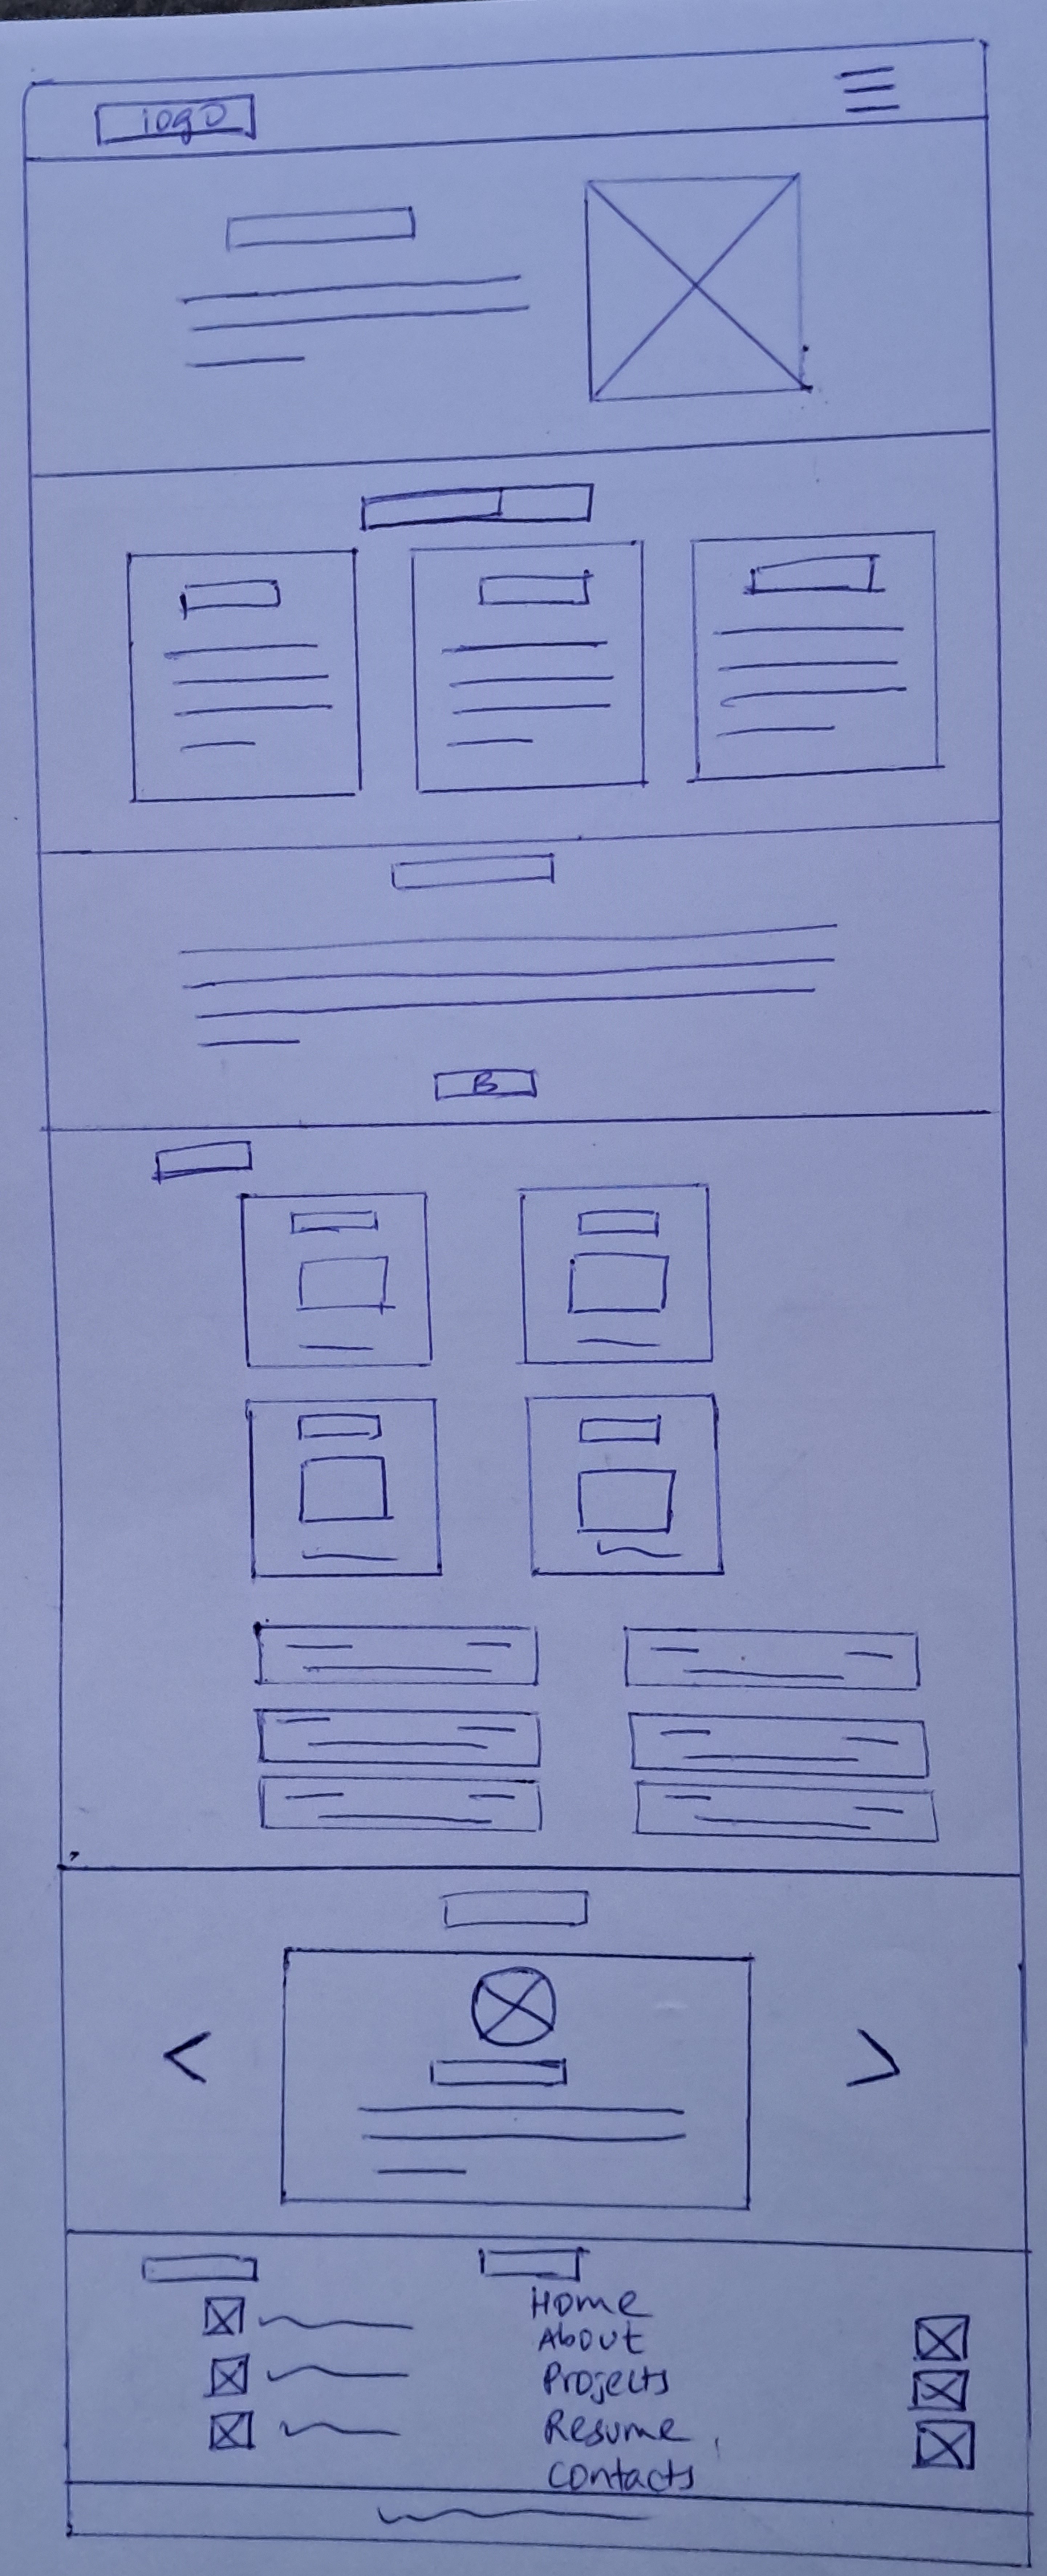 logo
B
Home
About
Projects
Resume
Contacts